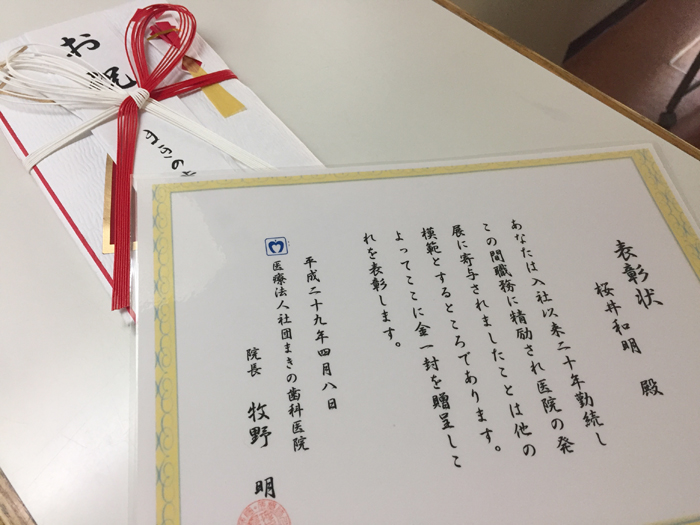 表彰状
桜井和明 殿
あなたは入社以来二十年勤続し
この間職務に精励され医院の発
展に寄与されましたことは他の
模範とするところであります。
よってここに金一封を贈呈しこ
れを表彰します。
平成二十九年四月八日
医療法人社団まきの歯科医院
院長 牧野 明
お祝
まきの